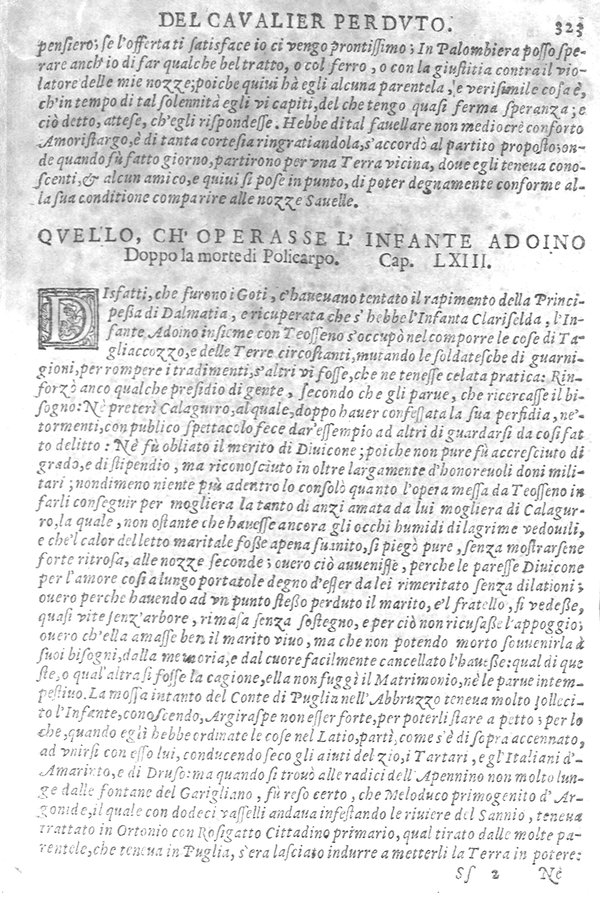 DEL CAVALIER PERDVTO. 323
pensiero; se l'offerta ti satisface io ci vengo prontissimo; In Palombiera posso spe-
rare anch'io di far qualche bel tratto, o col ferro, o con la giustitia contra il vio-
latore delle mie nozze; poiche quiui hà egli alcuna parentela, e verisimile cosa è,
ch'in tempo di tal solennità egli vi capiti, del che tengo quasi ferma speranza; e
ciò detto, attese, ch'egli rispondesse. Hebbe di tal fauellare non mediocrè conforto
Amoristargo, è di tanta cortesia ringratiandola, s'accordò al partito propostoson-
de quando fù fatto giorno, partirono per vna Terra vicina, doue egli teneua cono-
scenti, & alcun amico, e quiui si pose in punto, di poter degnamente conforme al-
la sua conditione comparire alle nozze Sauelle.
QVELLO, CH' OPERASSE L' INFANTE ADOINO
Doppo la morte di Policarpo. Cap. LXIII.
DIsfatti, che furono i Goti, c'haueuano tentato il rapimento della Princi-
pessa di Dalmatia, e ricuperata che s'hebbe l'Infanta Clariselda, l'In-
fante Adoino insieme con Teosseno s'occupò nel comporre le cose di Ta-
gliacozzo, e delle Terre circostanti, mutando le soldatesche di guarni-
gioni, per rompere i tradimenti, s'altri vi fosse, che ne tenesse celata pratica: Rin-
forzò anco qualche presidio di gente, secondo che gli parue, che ricercasse il bi-
sogno: Nè preterì Calagurro, al quale, doppo hauer confessata la sua perfidia, ne'
tormenti, con publico spettacolo fece dar'essempio ad altri di guardarsi da cosi fat
to delitto: Nè fù obliato il merito di Diuicone; poiche non pure fù accresciuto di
grado, e di stipendio, ma riconosciuto in oltre largamente d'honoreuoli doni mili-
tari; nondimeno niente più adentro lo consolò quanto l'opera messa da Teosseno in
farli conseguir per mogliera la tanto di anzi amata da lui mogliera di Calagur-
ro, la quale, non ostante che hauesse ancora gli occhi humidi di lagrime vedouili,
e che'l calor del letto maritale fosse apena suanito, si piegò pure, senza mostrarsene
forte ritrosa, alle nozze seconde; ouero ciò auuenisse, perche le paresse Diuicone
per l'amore cosi a lungo portatole degno d'esser da lei rimeritato senza dilationi;
ouero perche hauendo ad vn punto stesso perduto il marito, e'l fratello, si vedesse,
quasi vite senz'arbore, rimasa senza sostegno, e per ciò non ricusasse l'appoggio;
ouero ch'ella amasse ben il marito viuo, ma che non potendo morto souuenirla à
suoi bisogni, dalla memoria, e dal cuore facilmente cancellato l'hauesse: qual di que
ste, o qual'altra si fosse la cagione, ella non fuggì il Matrimonio, nè le parue intem-
pestiuo. La mossa intanto del Conte di Puglia nell'Abbruzzo teneua molto solleci-
to l'Infante, conoscendo, Argiraspe non esser forte, per poterli stare a petto; per lo
che, quando egli hebbe ordinate le cose nel Latio, partì, come s'è di sopra accennato,
ad vnirsi con esso lui, conducendo seco gli aiuti del zio, i Tartari, e gl'Italiani d'
Amarinto, e di Druso: ma quando si trouò alle radici dell'Apennino non molto lun-
ge dalle fontane del Garigliano, fù reso certo, che Meloduco primogenito d'Ar-
gonide, il quale con dodeci vasselli andaua infestando le riuiere del Sannio, teneua
trattato in Ortonio con Rosigatto Cittadino primario, qual tirato dalle molte pa-
rentele, che teneua in Puglia, s'era lasciato indurre a metterli la Terra in potere:
Ss 2 Nè